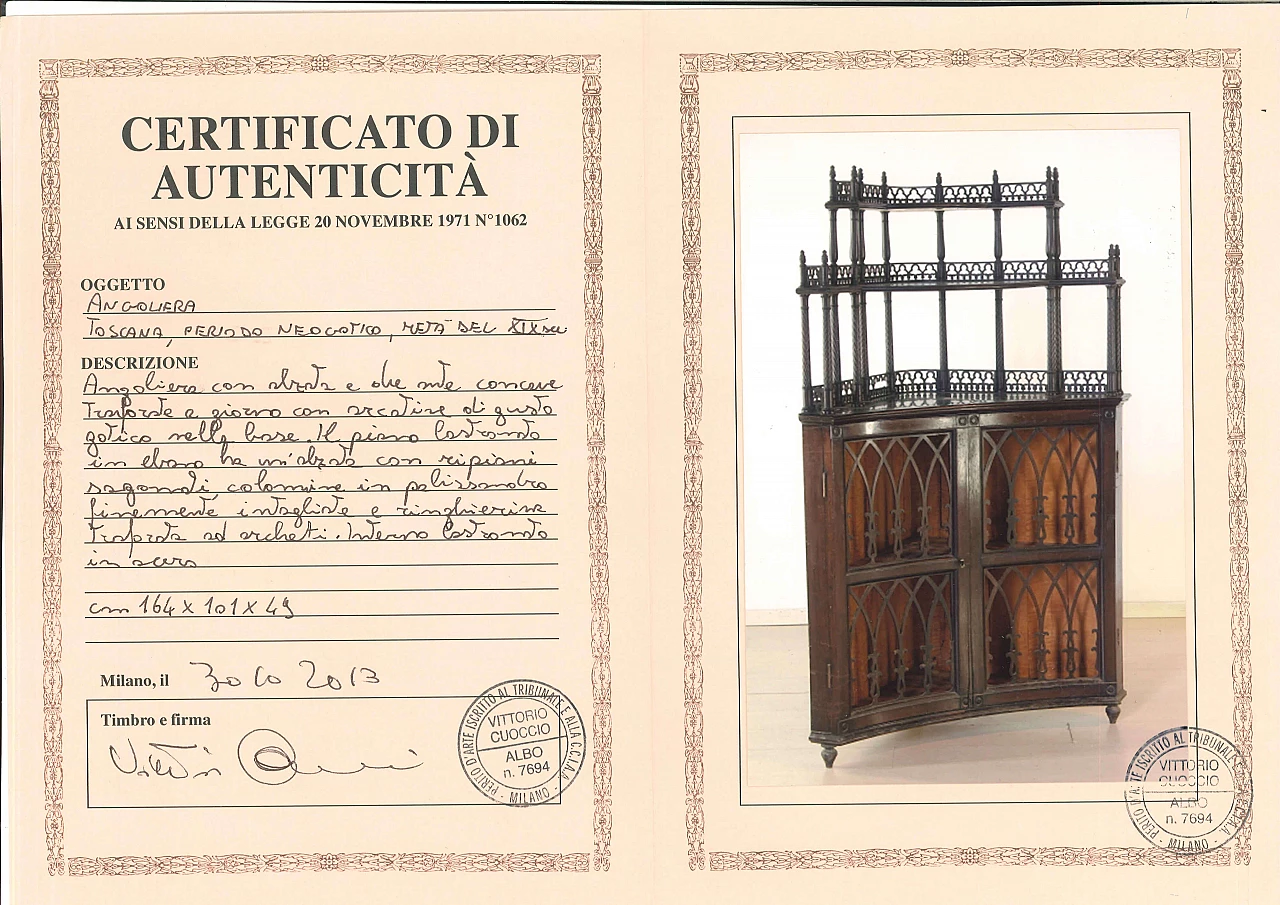 CERTIFICATO DI
AUTENTICITÀ
AI SENSI DELLA LEGGE 20 NOVEMBRE 1971 N°1062
OGGETTO
ANGOLIERA
TOSCANA, PERIODO NEOGOTICO, METÀ DEL XIX sec
DESCRIZIONE
Angoliera con alzata e due ante concave
Traforate a giorno con arcatine di gusto
gotico nella base. Il piano lastronato
in ebano ha un'alzata con ripiani
sagomati, colonnine in palissandro
finemente intagliate e ringhierina
traforata ad archetti. Interno lastronato
in acero
cm 164 x 101 x 49
Milano, il 30 10 2013
Timbro e firma
PERITO D'ARTE ISCRITTO AL TRIBUNALE E ALLA C.C.I.A.A.
VITTORIO
CUOCCIO
ALBO
n. 7694
- MILANO -
PERITO D'ARTE ISCRITTO AL TRIBUNALE E ALLA C.C.I.A.A.
VITTORIO
CUOCCIO
ALBO
n. 7694
- MILANO -